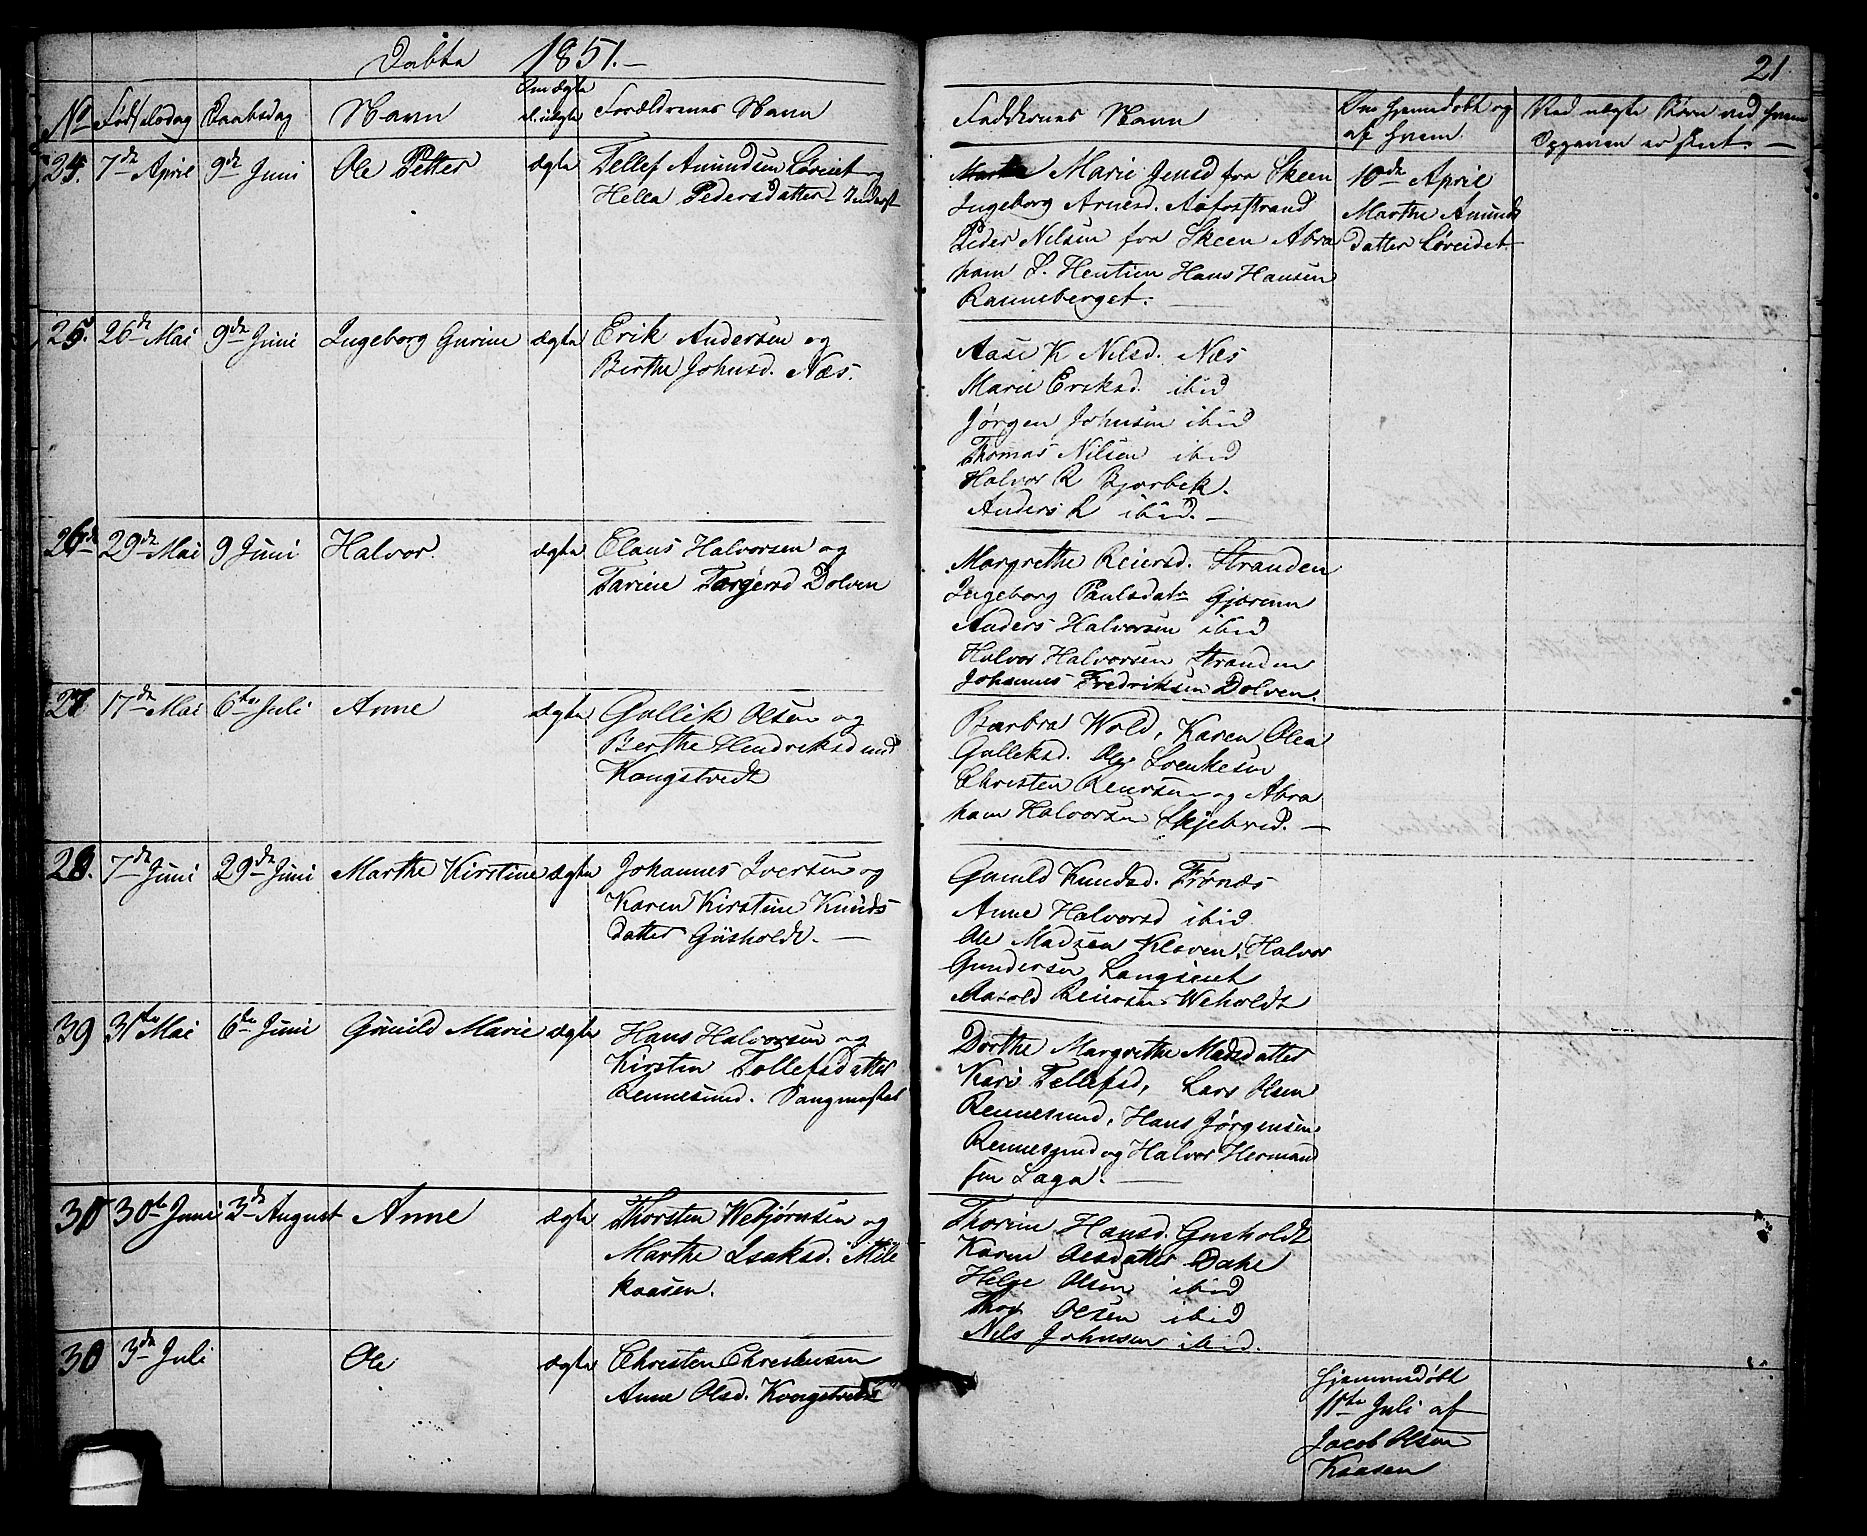 Døbte 1851.
21
No Fødselsdag Daabsdag Navn Om ægte el. uægte Forældrenes Navn Faddernes Navn Om hjemmedøbt og af hvem Ved uægte Børn ved hvem Opgaven er skeet
24. 7de April 9de Juni Ole Petter ægte Tellef Amundsen Løveiet og
Hella Pedersdatter Inderst
Marie Jensd fra Skeen
Ingeborg Arnesd. Aafosstrand
Peder Nilsen fra Skeen Abra
ham S. Hentien Hans Hansen
Ranneberget.
10de April
Marthe Amunds
datter Løveidet
25. 26de Mai 9de Juni Ingeborg Gurine ægte Erik Andersen og
Berthe Johnsd. Næs.
Aase K Nilsd. Næs
Marie Eriksd. ibid
Jørgen Johnsen ibid
Thomas Nilsen ibid
Halvor R Bjorbek.
Anders R ibid.
26 29de Mai 9 Juni Halvor. ægte Claus Halvorsen og
Tarine Torgersd Dolven
Margrethe Reiersd. Stranden
Ingeborg Paulsdatr Gjermun
Anders Halvorsen ibid
Halvor Halvorsen Stranden
Johannes Fredriksen Dolven.
27 17de Mai 6te Juli Anne ægte Gullik Olsen og
Berthe Hendriksd und
Kongstvedt
Barbra Wold, Karen Olea
Gulleksd. Ole Svenkesen
Christen Reiersen og Abra
ham Halvorsen Skjebred.
28. 7de Juni 29de Juni Marthe Kirstine ægte Johannes Iversen og
Karen Kirstine Knuds
datter Gusholdt.
Gunild Knudsd. Frønæs
Anne Halvorsd ibid
Ole Madsen Kleven, Halvor
Gundersen Langseiet
Aasold Reiersen Weholdt
39 31te Mai 6te Juni Gunild Marie ægte Hans Halvorsen og
Kirsten Tollefsdatter
Rennesund.
Dorthe Margrethe Madsdatter
Kari Tellefsd, Lars Olsen
Rennesund, Hans Jørgensen
Rennesund og Halvor Herman
sen Laga.
30 30te Juni 3de August Anne ægte Thorsten Webjørnsen og
Marthe Isaksd. Mele
kaasen.
Thorine Hansd. Gusholdt
Karen Olesdatter Dahl
Helge Olsen ibid
Thor Olsen ibid
Nils Johnsen ibid.
30 3de Juli Ole ægte Christen Christensen
Anne Olsd. Kongstvedt
Hjemmedøbt
11te Juli af
Jacob Olsen
Kaasen